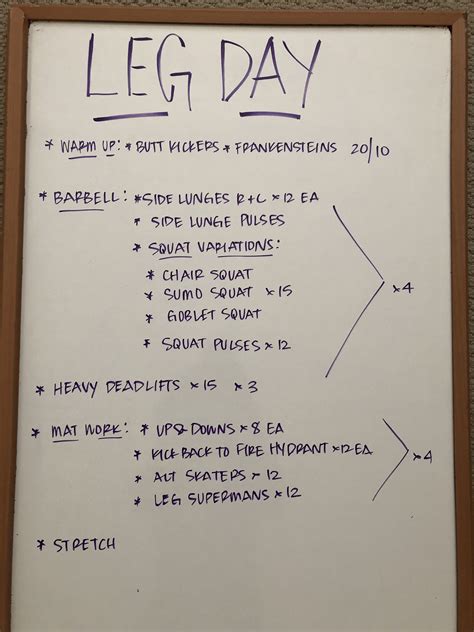 LEG DAY
* WARM UP: * BUTT KICKERS * FRANKENSTEINS 20/10
* BARBELL: * SIDE LUNGES R+C × 12 EA
* SIDE LUNGE PULSES
* SQUAT VARIATIONS:
* CHAIR SQUAT
* SUMO SQUAT × 15
* GOBLET SQUAT
* SQUAT PULSES × 12
×4
* HEAVY DEADLIFTS × 15 × 3
* MAT WORK: * UPS & DOWNS × 8 EA
* KICK BACK TO FIRE HYDRANT × 12 EA
* ALT SKATERS × 12
* LEG SUPERMANS × 12
×4
* STRETCH